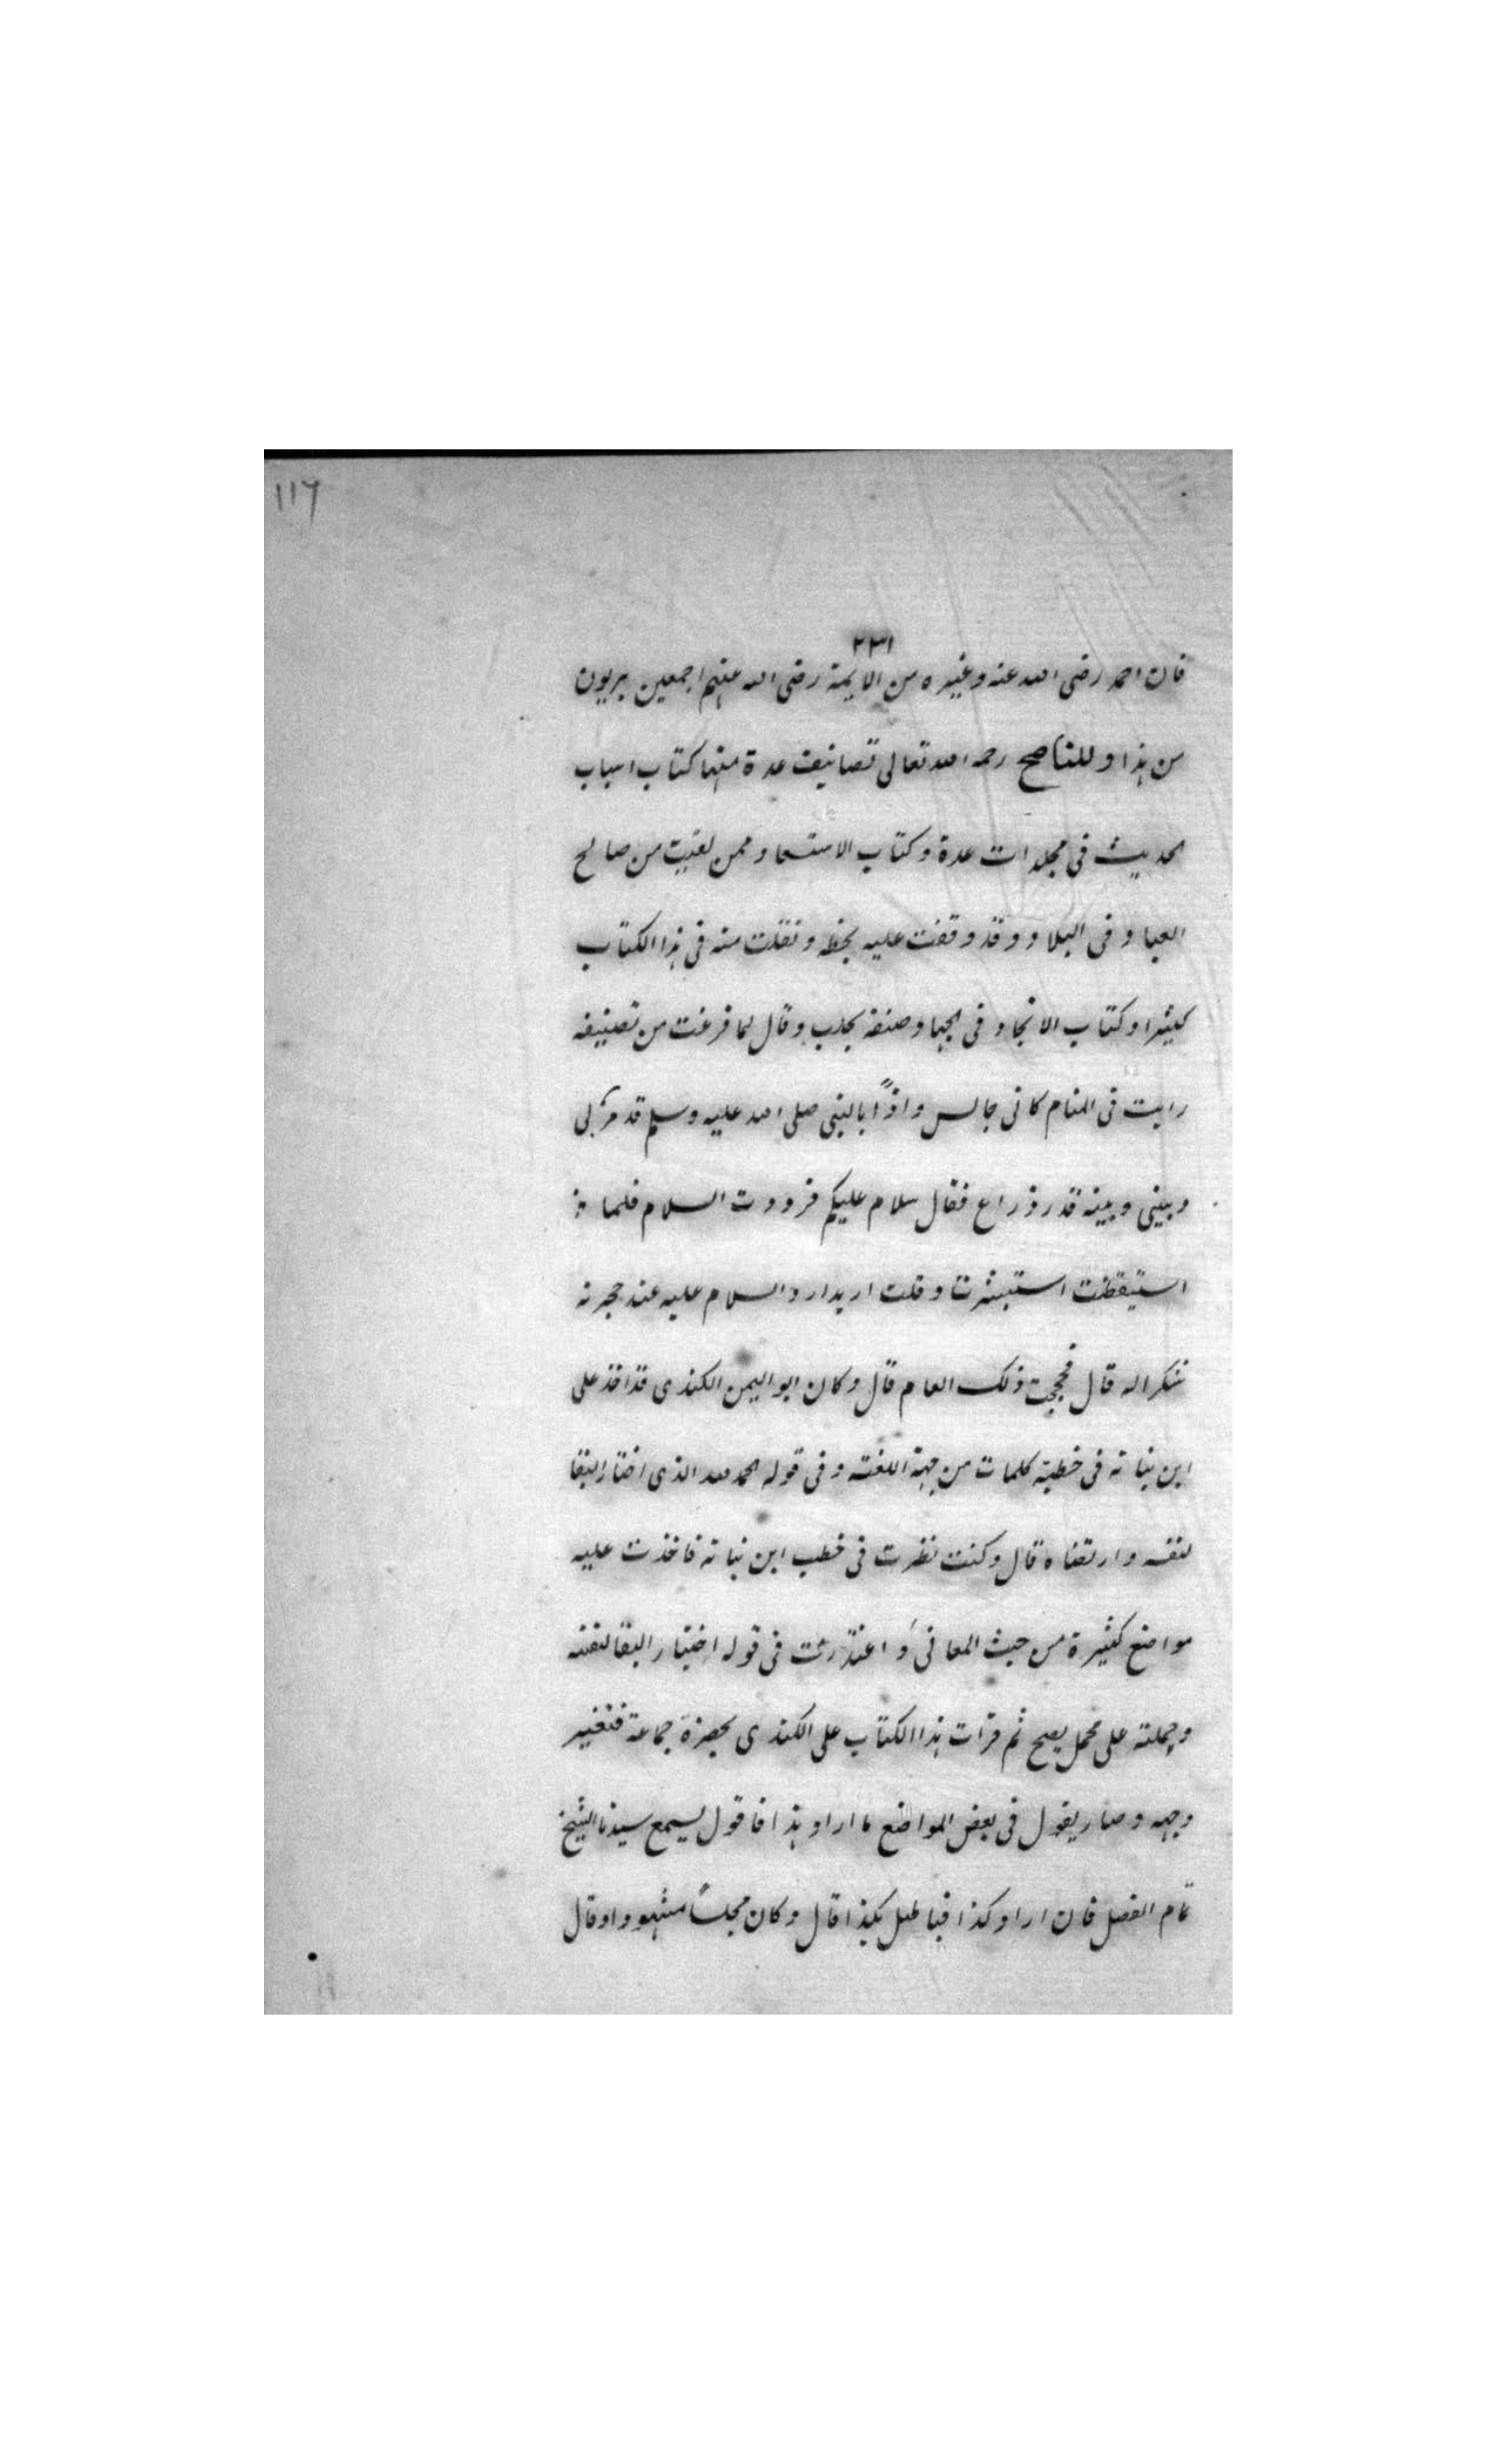 ١١٦
٢٣١
فان احمد رضی الله عنه وغیره من الایمة رضی الله عنهم اجمعین بریون
من هذا وللناصح رحمه الله تعالی تصانیف عدة منها کتاب اسباب
الحدیث فی مجلدات عدة وکتاب الاستسعا وممن لقیت من صالح
العبا و فی البلا و وقد وقفت علیه بخطه ونقلت منه فی هذا الکتاب
کثیرا وکتاب الانجا و فی الجها و صنفه بحلب وقال لما فرغت من تصنیفه
رایت فی المنام کانی جالس واذًا بالنبی صلی الله علیه وسلم قد مرّ بی
وبینی وبینه قدر ذراع فقال سلام علیکم فرووت السلام فلما
استیقظت استبشرت وقلت ارید ارد السلام علیه عند حجرته
شکرا له قال فحججت ذلک العام قال وکان ابو الیمن الکندی قد اخذ علی
ابن نباته فی خطبه کلمات من جهة اللغة وفی قوله الحمد لله الذی اختار البقا
لنفسه وارتضاه قال وکنت نظرت فی خطب ابن نباته فاخذت علیه
مواضع کثیرة من حیث المعانی واعتذرت فی قوله اختار البقا لنفسه
وحملته علی محمل یصح ثم قرات هذا الکتاب علی الکندی بحضرة جماعة فتغیر
وجهه وصار یقول فی بعض المواضع ما اراو هذا فاقول لیسمع سیدنا الشیخ
تمام الفصل فان اراو کذا فیا طل بکذا قال وکان مجلسًا مشهووا وقال